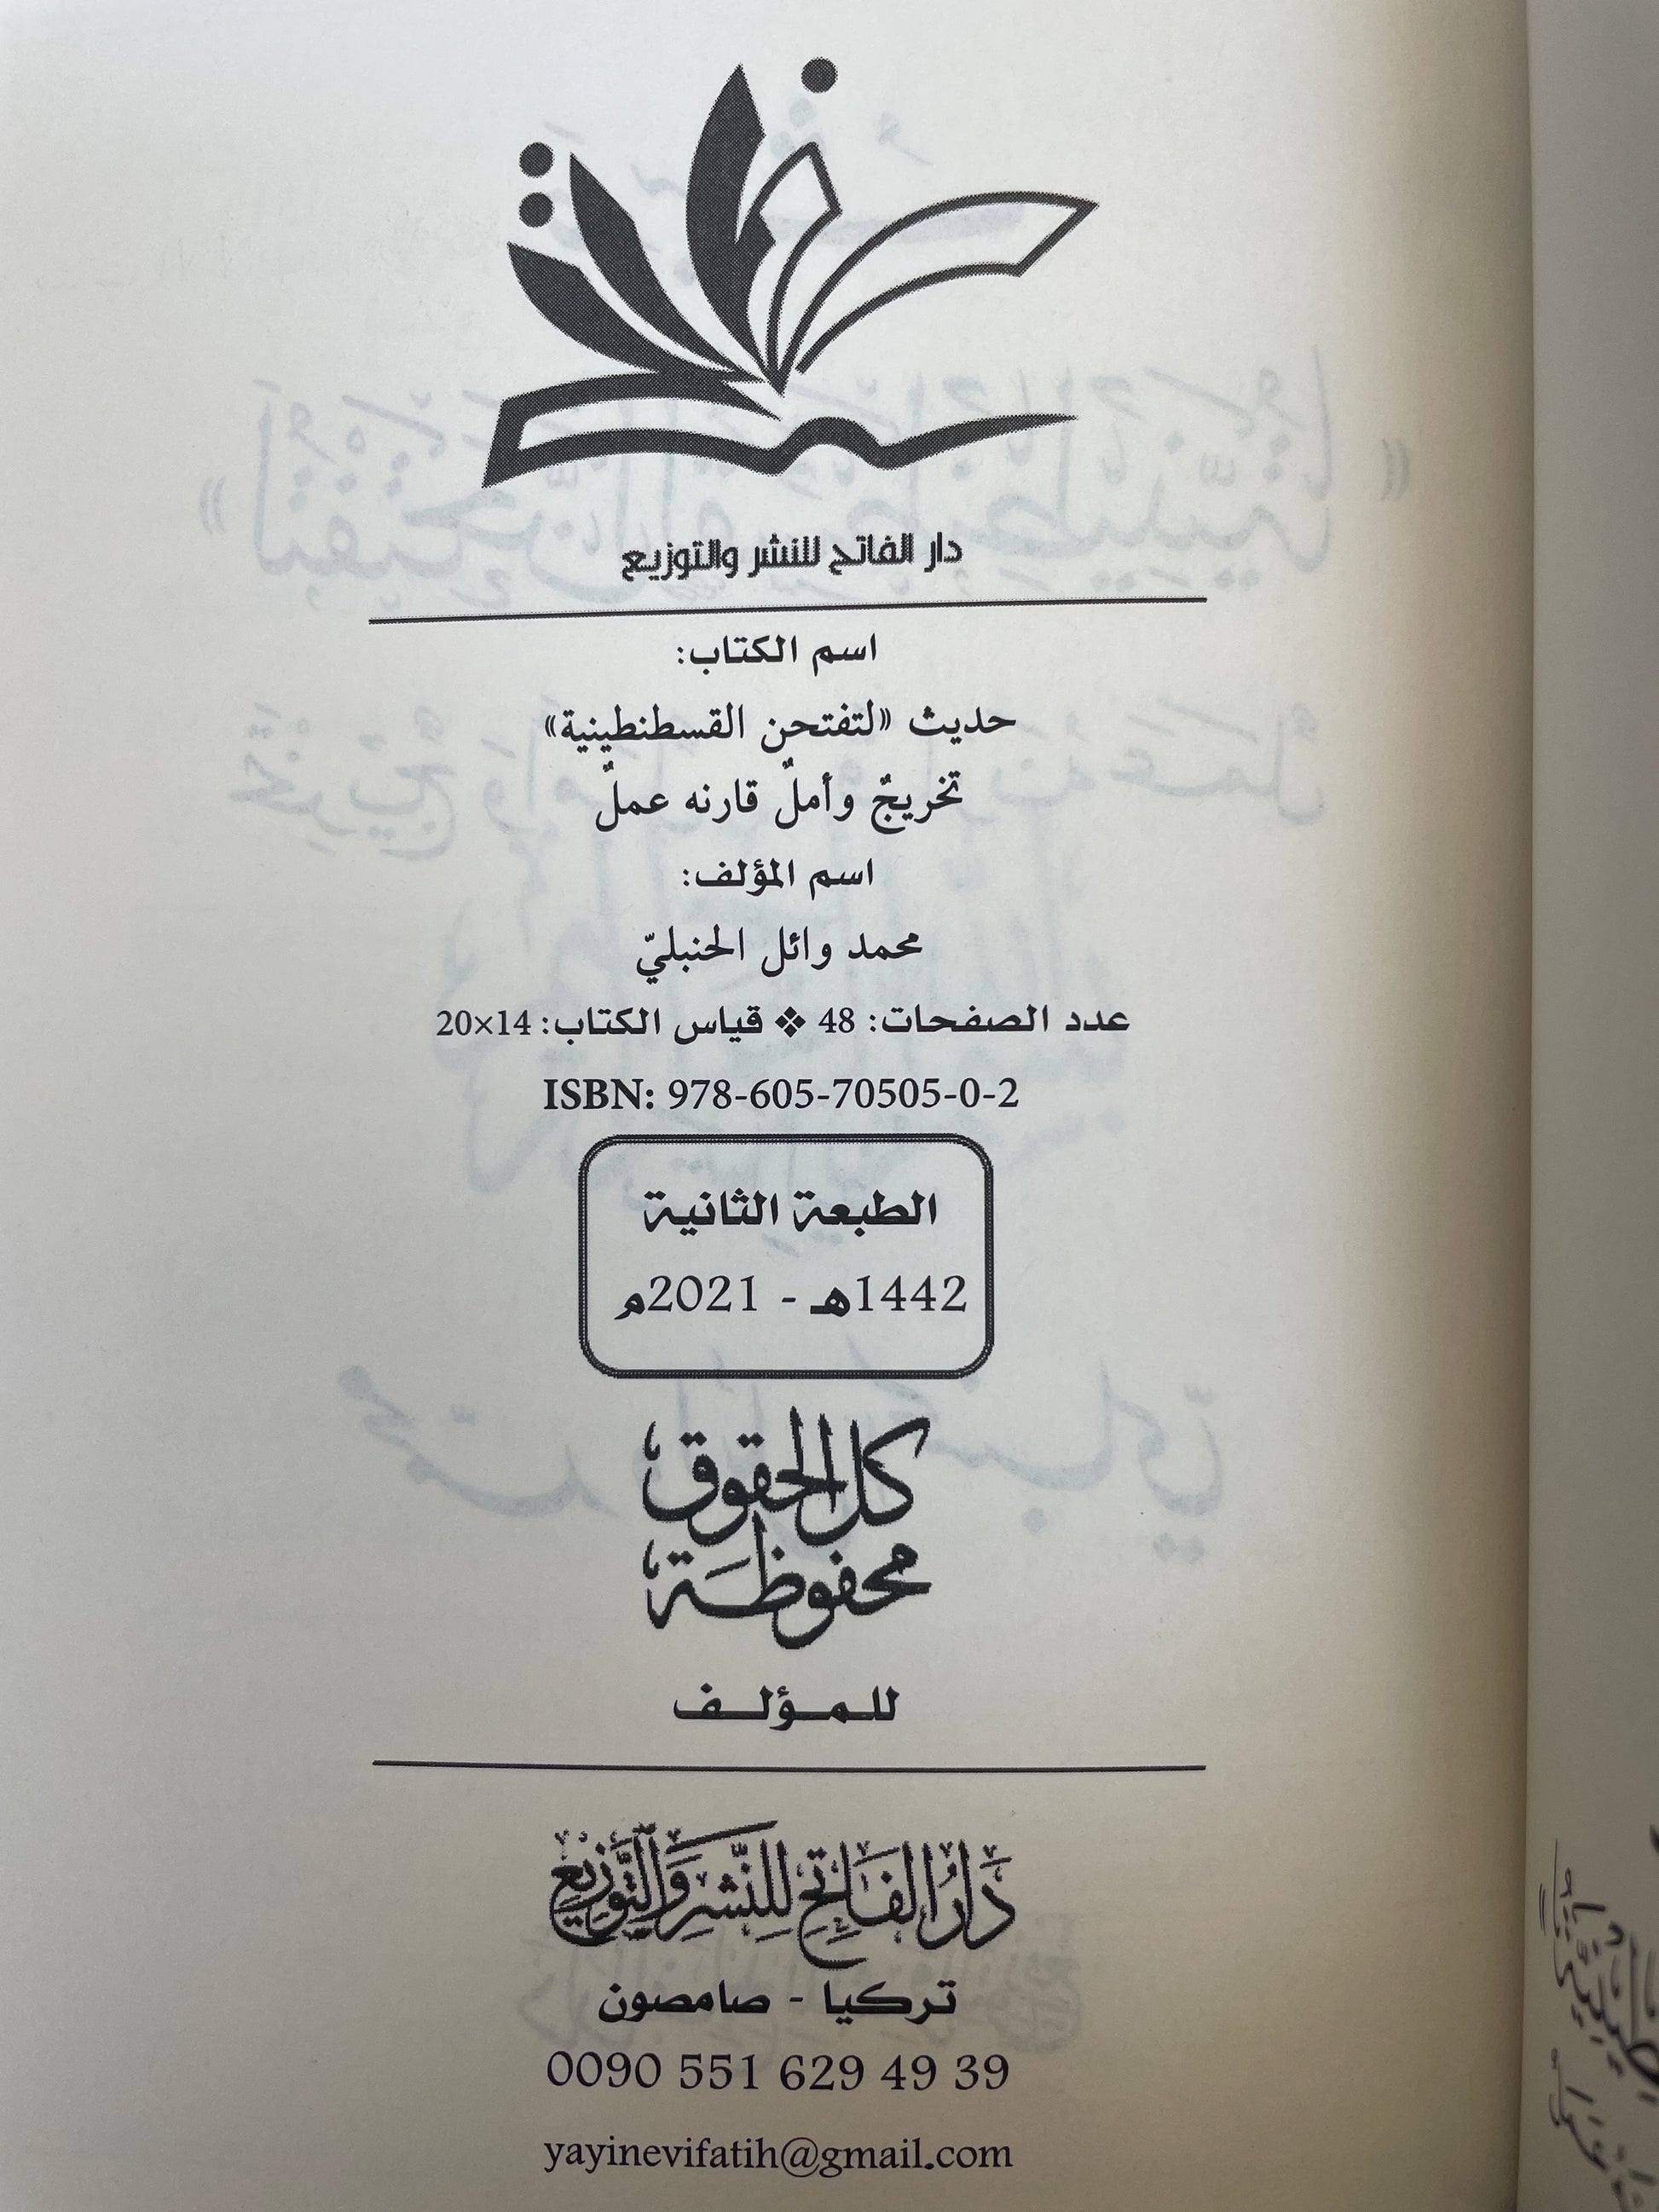 دار الفاتح للنشر والتوزيع
اسم الكتاب:
حديث «لتفتحن القسطنطينية»
تخريجٌ وأملٌ قارنه عملٌ
اسم المؤلف:
محمد وائل الحنبليّ
عدد الصفحات: 48 ❖ قياس الكتاب: 14×20
ISBN: 978-605-70505-0-2
الطبعة الثانية
1442هـ - 2021م
كل الحقوق
محفوظة
للمؤلف
دَارُ الفَاتِح لِلنَّشرِ وَالتَّوزِيع
تركيا - صامصون
0090 551 629 49 39
yayinevifatih@gmail.com